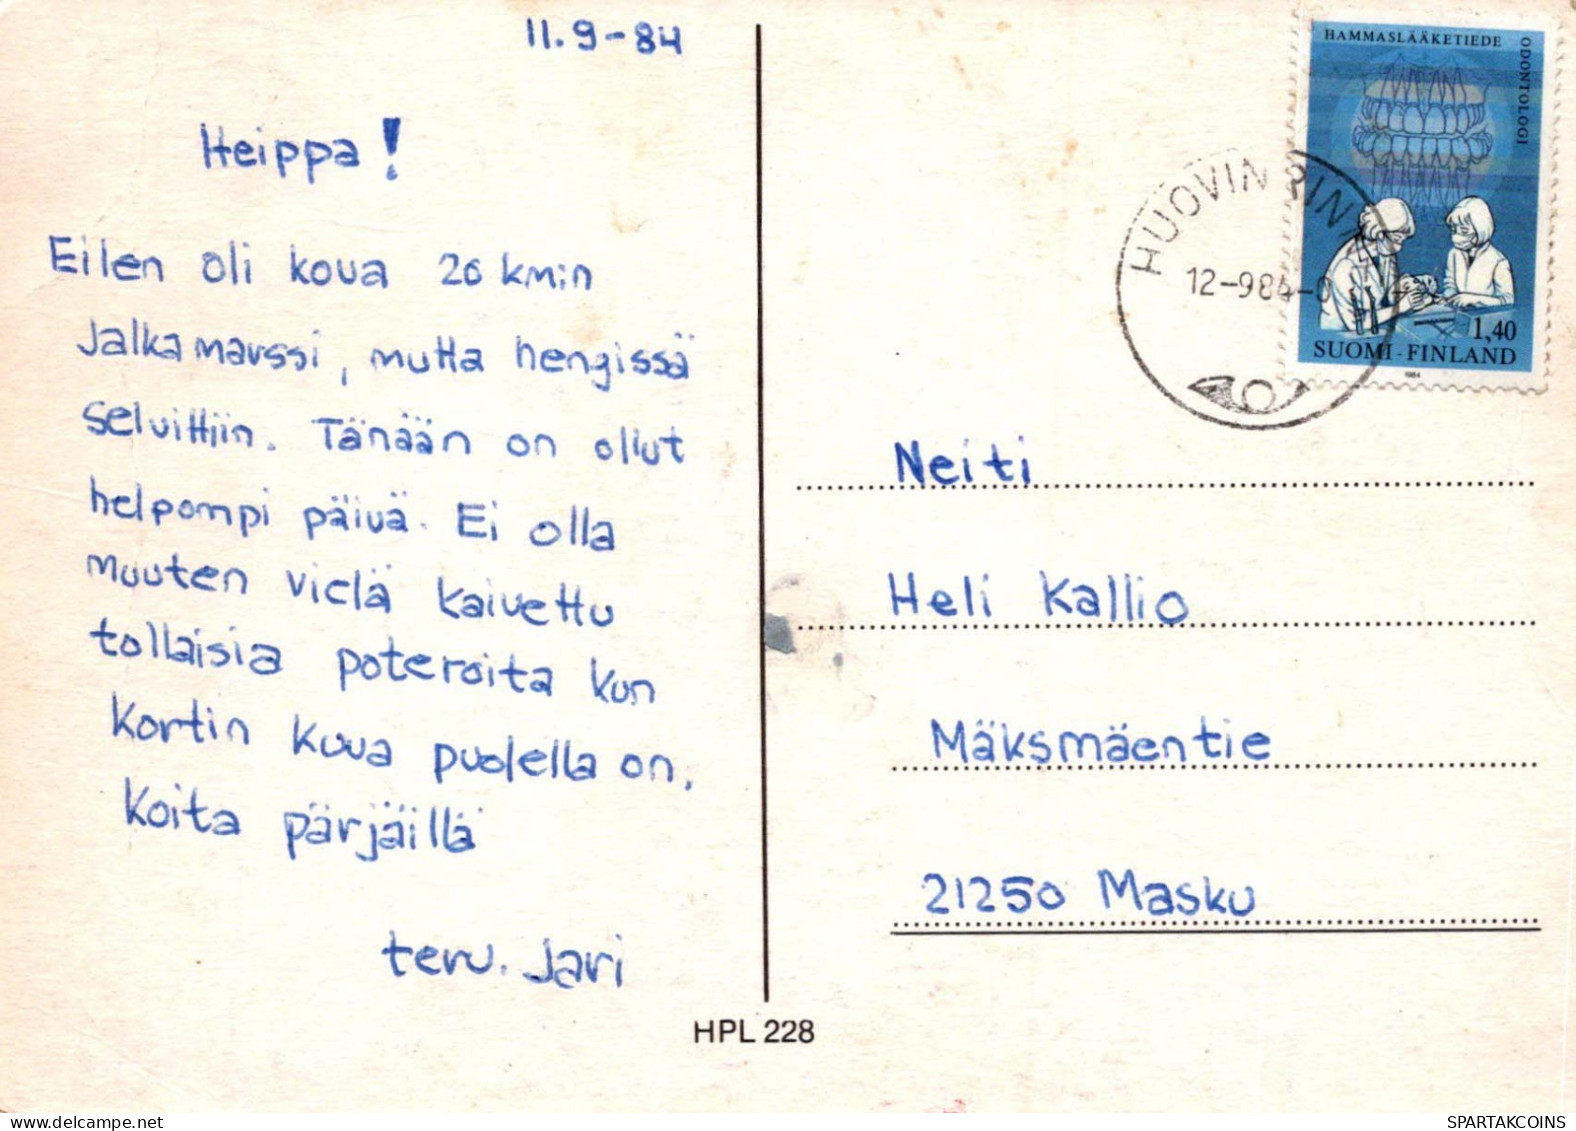 11.9-84
Heippa!
Eilen oli kova 20 kmin
jalkamarssi, mutta hengissä
selvittiin. Tänään on ollut
helpompi päivä. Ei olla
muuten vielä kaivettu
tollaisia poteroita kun
kortin kuva puolella on.
Koita pärjäillä
terv. Jari
HPL 228
HAMMASLÄÄKETIEDE
ODONTOLOGI
1,40
SUOMI-FINLAND
1984
HUOVINRINN
12-984-0
Neiti
Heli Kallio
Mäksmäentie
21250 Masku
www.delcampe.net
SPARTAKCOINS